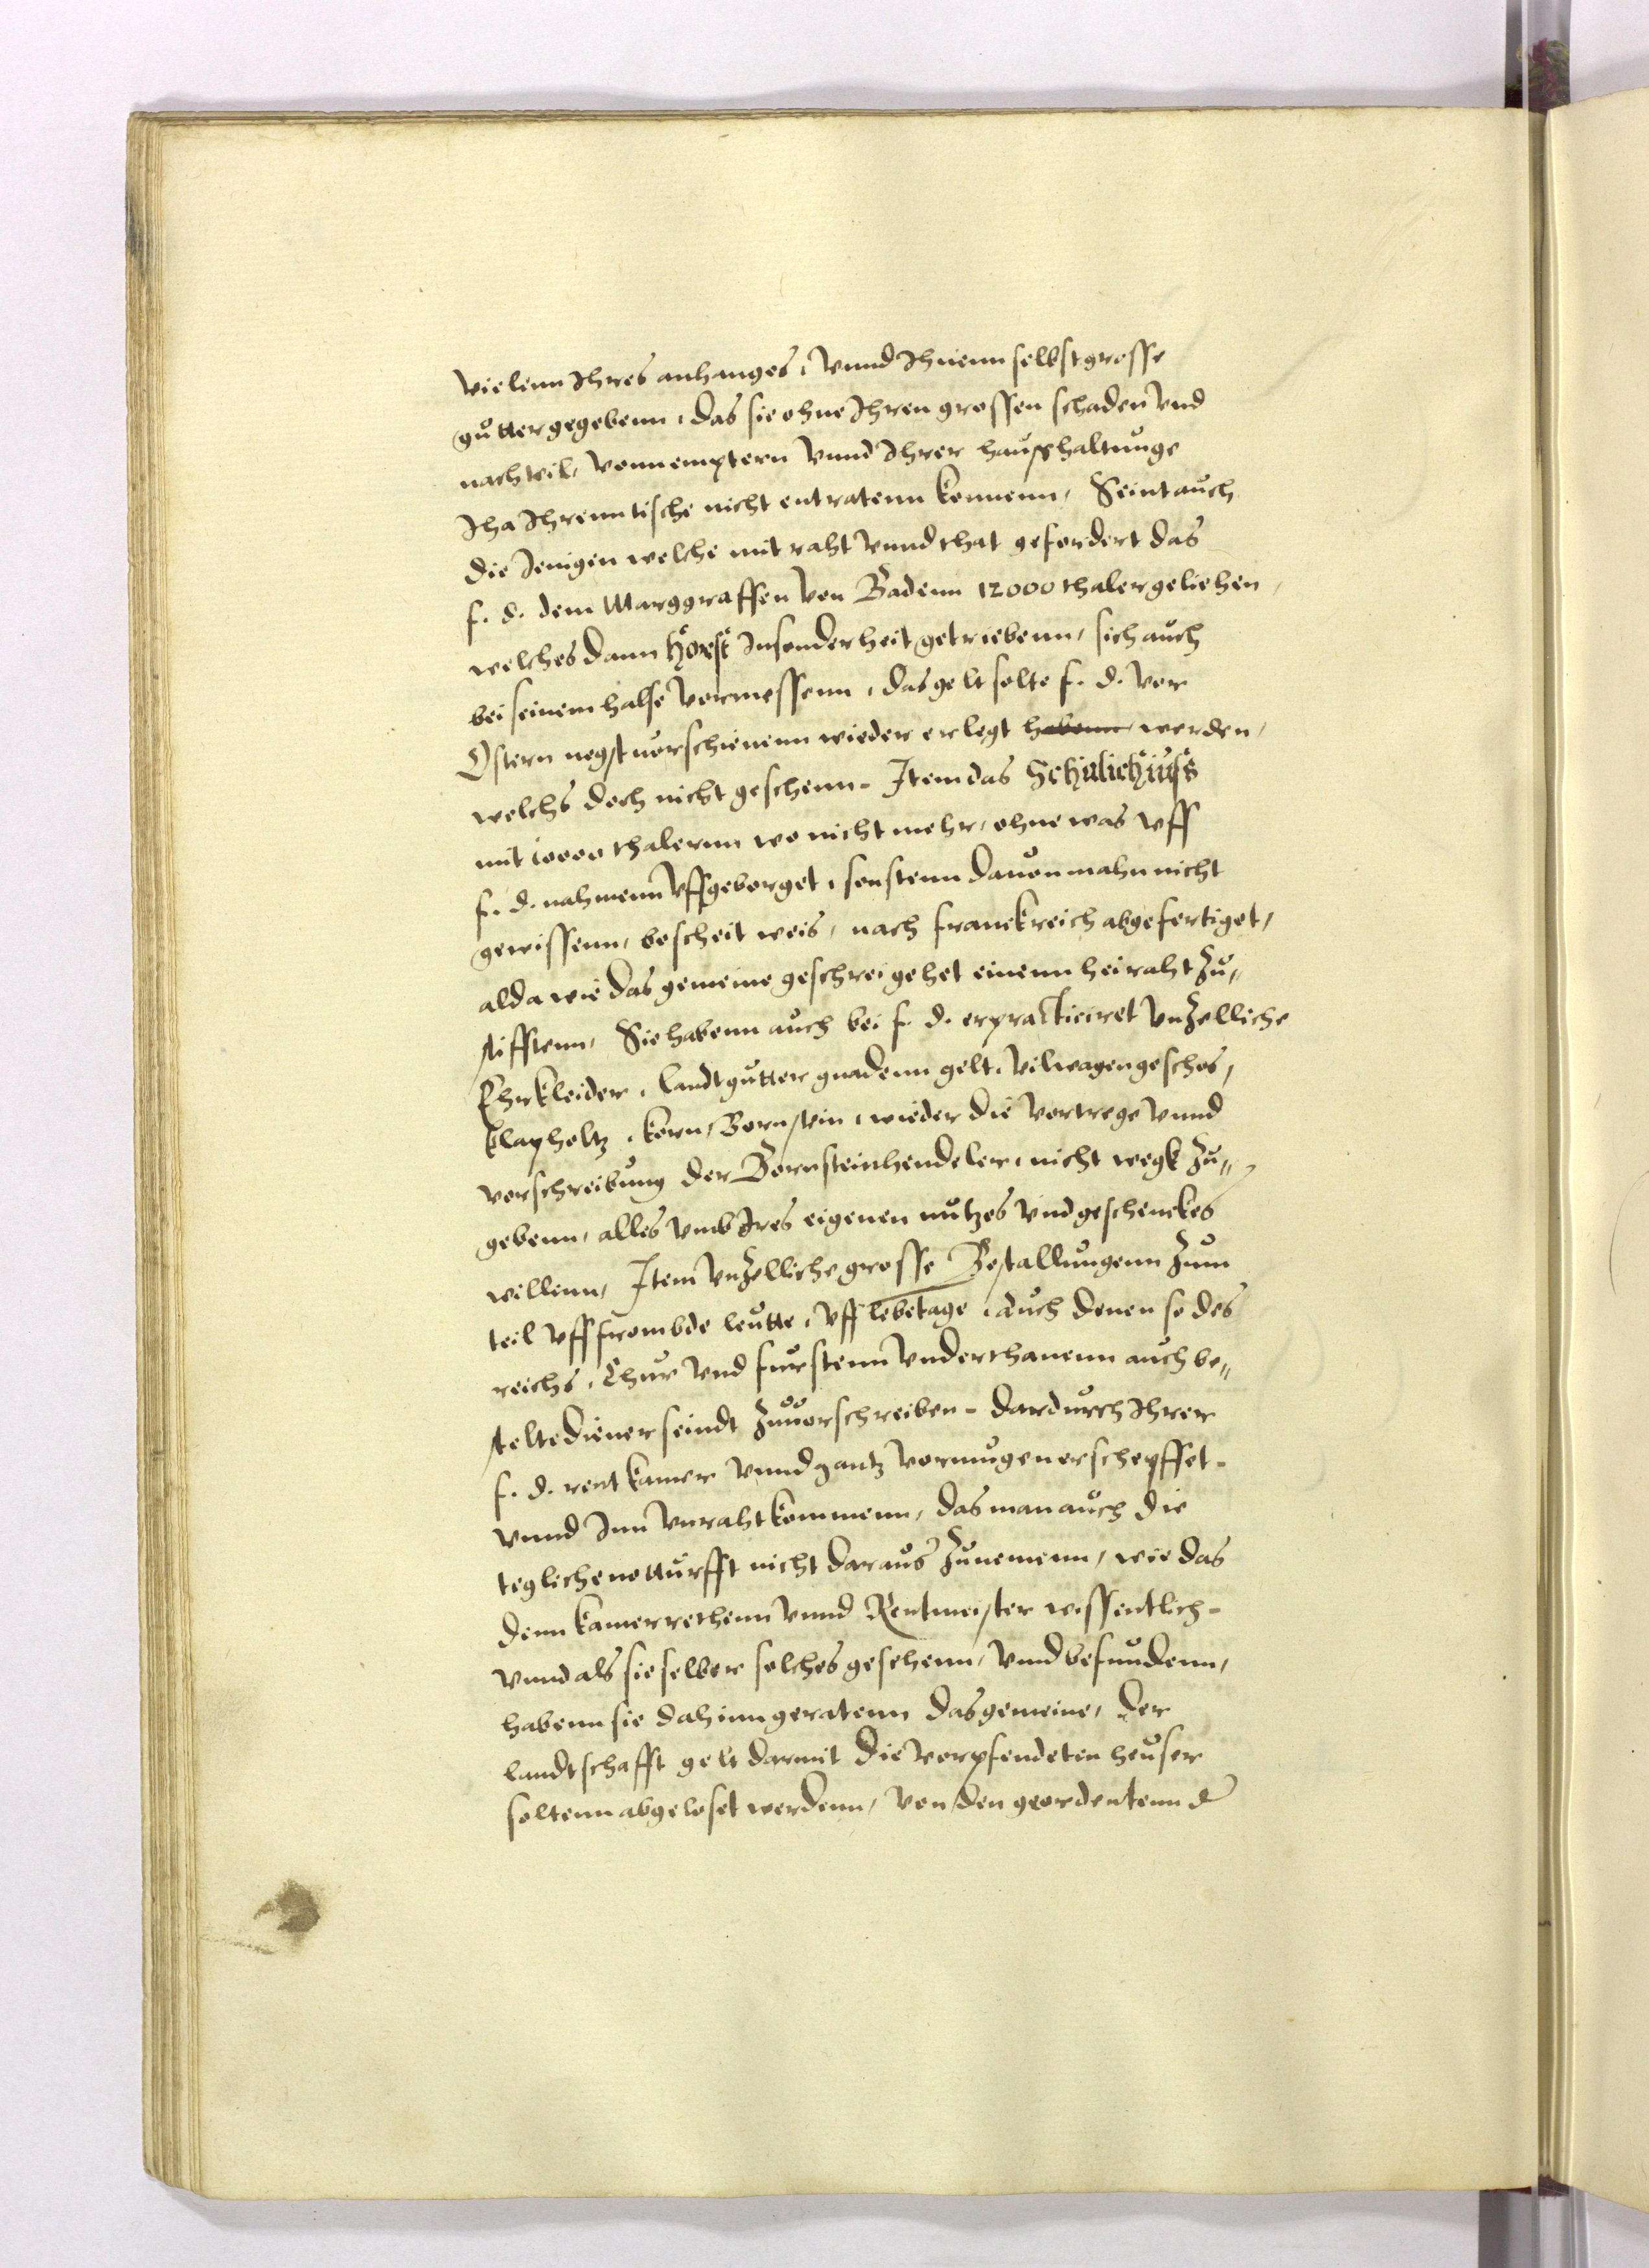 vielenn Ihres anhanges, vnnd Ihnenn selbst grosse
gůtter gegebenn, das sie ohne Ihren grossen schaden vnd
nachteil, vonn emptern vnnd Ihrer haůßhaltunge
Iha Ihrenn tische nicht entratenn konnenn, Seint aůch
die Jenigen welche mit raht vnnd that gefordert das
f. d. dem Marggraffen von Badenn 12000 thaler geliehen,
welches dann Horst Insonderheit getriebenn, sich aůch
bei seinem halse vormessenn, das gelt solte f. d. vor
Ostern negst vorschienenn wieder erlegt habenn werden,
welchs doch nicht geschenn - Item das Schulichius
mit 10000 thalernn wo nicht mehr, ohne was vff
f. d. nahmenn vffgeborget, sonstenn dauon mahn nicht
gewissenn, bescheit weis, nach franckreich abgefertiget,
alda wie das gemeine geschrei gehet einenn heiraht zů„
stifftenn, Sie habenn aůch bei f. d. erpracticiret vnzelliche
Ehrkleider, landtgůtter gnadenn gelt, vilwagengeschos,
klapholtz, korn, Bornstein, wieder die vortrege vnnd
vorschreibůng der Bornsteinhendeler, nicht wegk zů„
gebenn, alles vmb Ires eigenen nůtzes vnd geschenckes
willenn, Item vnzelliche grosse Bestallůngenn zům
teil vff frombde leůtte, vff lebetage, aůch denen so des
reichs, Chůr vnd fůrstenn vnderthanenn aůch be„
stelte diener seindt zůuorschreiben - dardůrch Ihrer
f. d. rentkamer vnnd gantz vormůgen erschepffet -
vnnd Inn vnraht kommenn, das man aůch die
teglichenottůrfft nicht daraůs zůnemenn, wie das
denn kamerrethenn vnnd Rentmeister wissentlich -
vnnd als sie selber solches gesehenn, vnnd befůndenn,
habenn sie dahinn geratenn das gemeine, der
landtschafft gelt darmit die vorpfendeten heůser
soltenn abgeloset werdenn, von den geordentenn d